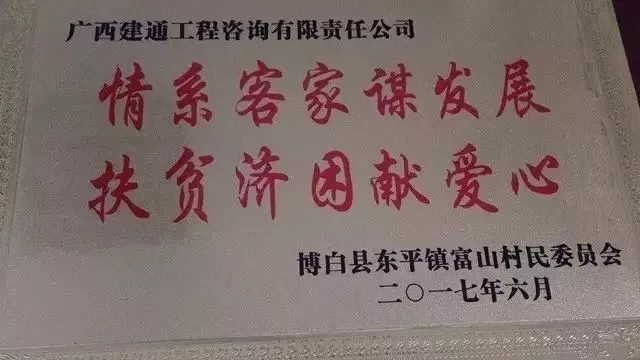 广西建通工程咨询有限责任公司
情系客家谋发展
扶贫济困献爱心
博白县东平镇富山村民委员会
二〇一七年六月